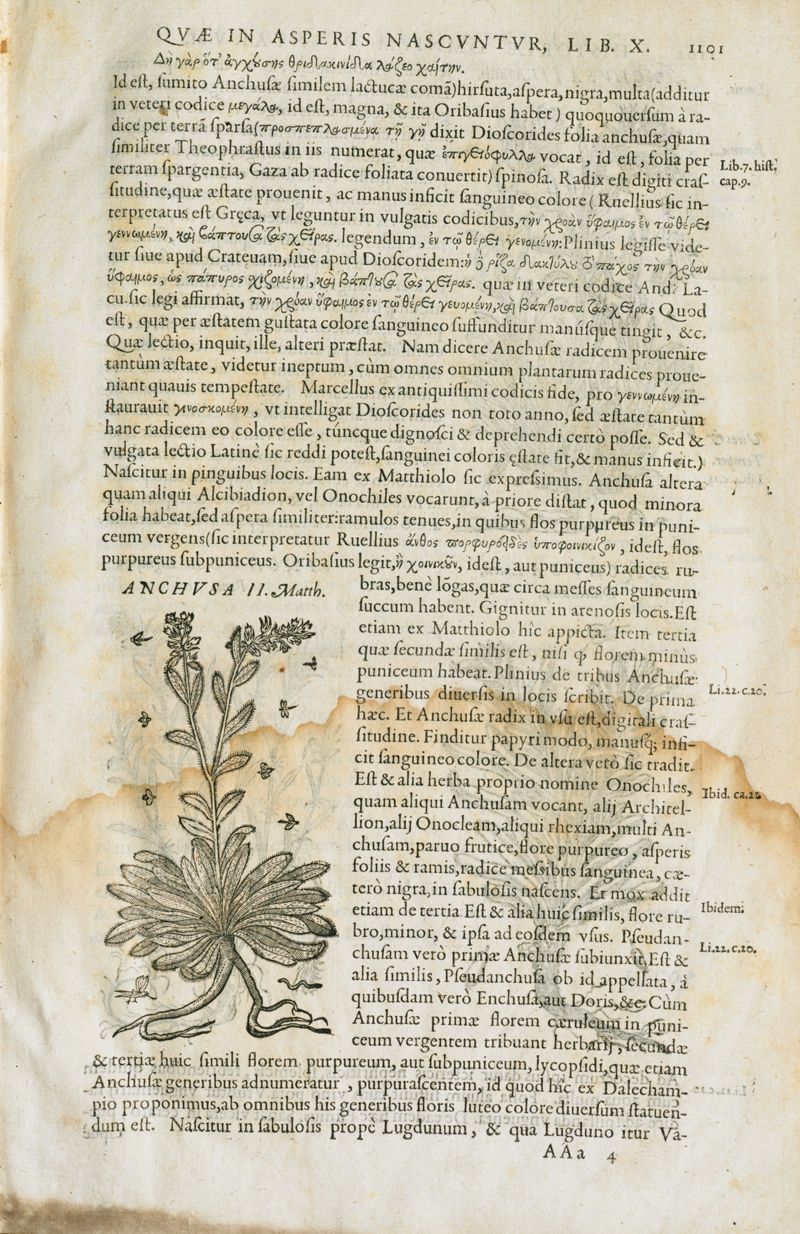 QVÆ IN ASPERIS NASCVNTVR, LIB. X. 1101
Δὴ γὰρ ὅτ' ἀγχούσης θριδακινίδα λάζεο χαίτην.
Id eſt, ſumito Anchuſæ ſimilem lactucæ comã) hirſuta, aſpera, nigra, multa (additur
in veteri codice μεγάλα, id eſt, magna, & ita Oribaſius habet) quoquouerſum à ra-
dice per terrã ſparſa (προσπεπλασμένα τῇ γῇ dixit Dioſcorides folia anchuſæ, quam
ſimiliter Theophraſtus in iis numerat, quæ ἐπιγειόφυλλα vocat, id eſt, folia per
terram ſpargentia, Gaza ab radice foliata conuertit) ſpinoſa. Radix eſt digiti craſ-
Lib. 7. hiſt.
cap. 9.
ſitudine, quæ æſtate prouenit, ac manus inficit ſanguineo colore (Ruellius ſic in-
terpretatus eſt Gręca, vt leguntur in vulgatis codicibus, τὴν χροὰν ὕφαιμος ἐν τῷ θέρει
γεννωμένη, καὶ βάπτουσα τὰς χεῖρας. legendum, ἐν τῷ θέρει γενομένη: Plinius legiſſe vide-
tur ſiue apud Crateuam, ſiue apud Dioſcoridem: ἡ δὲ ῥίζα δακτύλου τὸ πάχος τὴν χρόαν
ὕφαιμος, ὡς πάπυρος χιζομένη, καὶ βάπτουσα τὰς χεῖρας. quæ in veteri codice And. La-
cu. ſic legi affirmat, τὴν χρόαν ὕφαιμος ἐν τῷ θέρει γευομένη, καὶ βάπτουσα τὰς χεῖρας Quod
eſt, quæ per æſtatem guſtata colore ſanguineo ſuffunditur manúſque tingit, &c.
Quæ lectio, inquit, ille, alteri præſtat. Nam dicere Anchuſæ radicem prouenire
tantùm æſtate, videtur ineptum, cùm omnes omnium plantarum radices proue-
niant quauis tempeſtate. Marcellus ex antiquiſſimi codicis fide, pro γεννωμένη in-
ſtaurauit γινοσκομένη, vt intelligat Dioſcorides non toto anno, ſed æſtate tantùm
hanc radicem eo colore eſſe, túncque dignoſci & deprehendi certò poſſe. Sed &
vulgata lectio Latinè ſic reddi poteſt, ſanguinei coloris ęſtate fit, & manus inficit.)
Naſcitur in pinguibus locis. Eam ex Matthiolo ſic expreſſimus. Anchuſa altera
quam aliqui Alcibiadion, vel Onochiles vocarunt, à priore diſtat, quod minora
folia habeat, ſed aſpera ſimiliter: ramulos tenues, in quibus flos purpureus in puni-
ceum vergens (ſic interpretatur Ruellius ἄνθος πορφυροειδὲς ὑποφοινικίζον, id eſt, flos
purpureus ſubpuniceus. Oribaſius legit, ἢ χοινικοῦν, id eſt, aut puniceus) radices ru-
ANCHVSA II. Matth.
bras, benè lõgas, quæ circa meſſes ſanguineum
ſuccum habent. Gignitur in arenoſis locis. Eſt
etiam ex Matthiolo hîc appicta. Item tertia
quæ ſecundæ ſimilis eſt, niſi ꝙ florem minùs
puniceum habeat. Plinius de tribus Anchuſæ
generibus diuerſis in locis ſcribit. De prima
Li. 22. c. 20.
hæc. Et Anchuſæ radix in vſu eſt, digitali craſ-
ſitudine. Finditur papyri modo, manuſq; infi-
cit ſanguineo colore. De altera verò ſic tradit.
Eſt & alia herba proprio nomine Onochiles,
Ibid. ca. 21.
quam aliqui Anchuſam vocant, alij Architel-
lion, alij Onocleam, aliqui rhexiam, multi An-
chuſam, paruo frutice, flore purpureo, aſperis
foliis & ramis, radice meſſibus ſanguinea, cæ-
terò nigra, in ſabuloſis naſcens. Et mox addit
etiam de tertia Eſt & alia huic ſimilis, flore ru-
Ibidem.
bro, minor, & ipſa ad eoſdem vſus. Pſeudan-
chuſam verò primæ Anchuſæ ſubiunxit, Eſt &
Li. 22. c. 20.
alia ſimilis, Pſeudanchuſa ob id appellata, à
quibuſdam verò Enchuſa, aut Doris, &c. Cùm
Anchuſæ primæ florem cæruleum in puni-
ceum vergentem tribuant herbarij, ſecundæ
& tertiæ huic ſimili florem purpureum, aut ſubpuniceum, lycopſidi, quæ etiam
Anchuſæ generibus adnumeratur, purpuraſcentem, id quod hîc ex Dalecham-
pio proponimus, ab omnibus his generibus floris luteo colore diuerſum ſtatuen-
dum eſt. Naſcitur in ſabuloſis propè Lugdunum, & qua Lugduno itur Va-
AAa 4